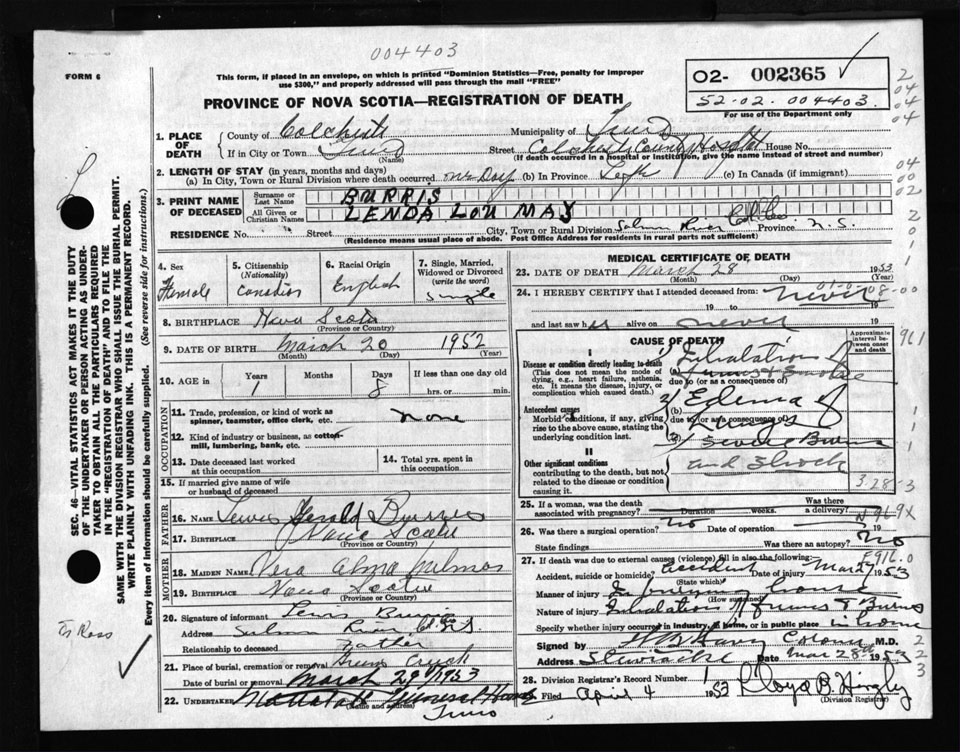 004403
FORM 6
This form, if placed in an envelope, on which is printed "Dominion Statistics—Free, penalty for improper
use $300," and properly addressed will pass through the mail "FREE"
O2- 002365
52-02. 004403.
For use of the Department only
PROVINCE OF NOVA SCOTIA—REGISTRATION OF DEATH
1. PLACE OF DEATH
County of Colchester Municipality of Truro
If in City or Town Truro Street Colchester County Hospital House No.
(Name) (If death occurred in a hospital or institution, give the name instead of street and number)
2. LENGTH OF STAY (in years, months and days)
(a) In City, Town or Rural Division where death occurred one Day (b) In Province Life (c) In Canada (if immigrant)
3. PRINT NAME OF DECEASED
Surname or Last Name BURRIS
All Given or Christian Names LENDA LOU MAY
RESIDENCE No. Street City, Town or Rural Division Salmon River Col. Co. Province N.S.
(Residence means usual place of abode. Post Office Address for residents in rural parts not sufficient)
4. Sex Female
5. Citizenship (Nationality) Canadian
6. Racial Origin English
7. Single, Married, Widowed or Divorced (write the word) Single
8. BIRTHPLACE Nova Scotia
(Province or Country)
9. DATE OF BIRTH March 20 1952
(Month) (Day) (Year)
10. AGE in Years Months Days If less than one day
1 8 hrs. or min.
OCCUPATION
11. Trade, profession, or kind of work as
spinner, teamster, office clerk, etc. none
12. Kind of industry or business, as cotton-
mill, lumbering, bank, etc.
13. Date deceased last worked
at this occupation
14. Total yrs. spent in
this occupation
15. If married give name of wife
or husband of deceased
FATHER
16. NAME Lewis Gerald Burris
17. BIRTHPLACE Nova Scotia
(Province or Country)
MOTHER
18. MAIDEN NAME Vera Alma
19. BIRTHPLACE Nova Scotia
(Province or Country)
20. Signature of informant Lewis Burris
Address Salmon River Col. Co. N.S.
Relationship to deceased Father
21. Place of burial, cremation or removal
Date of burial or removal March 29 1953
22. UNDERTAKER Mattatall Funeral Home
(Name and address)
Truro
MEDICAL CERTIFICATE OF DEATH
23. DATE OF DEATH March 28 1953
(Month) (Day) (Year)
24. I HEREBY CERTIFY that I attended deceased from: never
19 to 19
and last saw her alive on never 19
CAUSE OF DEATH
Approximate interval between onset and death
I
Disease or condition directly leading to death
(This does not mean the mode of
dying, e.g., heart failure, asthenia,
etc. It means the disease, injury, or
complication which caused death.)
(a) Inhalation of
fumes & smoke
due to (or as a consequence of)
Antecedent causes
Morbid conditions, if any, giving
rise to the above cause, stating the
underlying condition last.
(b) Edema of
Lungs
due to (or as a consequence of)
Severe Burns
II
Other significant conditions
contributing to the death, but not
related to the disease or condition
causing it.
and Shock
25. If a woman, was the death
associated with pregnancy? Duration weeks. Was there a delivery?
26. Was there a surgical operation? no Date of operation 19
State findings Was there an autopsy? no
27. If death was due to external causes (violence) fill in also the following:
Accident, suicide or homicide? accident Date of injury Mar 27 1953
(State which)
Manner of injury In burning house
(How sustained)
Nature of injury Inhalation of fumes & Burns
Specify whether injury occurred in industry, in home, or in public place in home
Signed by Coroner M.D.
Address Stewiacke Date Mar 28th 1953
28. Division Registrar's Record Number
Filed April 4 1953 Lloyd B. Hingley
(Division Registrar)
SEC. 46 — VITAL STATISTICS ACT MAKES IT THE DUTY
OF THE UNDERTAKER OR PERSON ACTING AS UNDER-
TAKER TO OBTAIN ALL THE PARTICULARS REQUIRED
IN THE "REGISTRATION OF DEATH" AND TO FILE THE
SAME WITH THE DIVISION REGISTRAR WHO SHALL ISSUE THE BURIAL PERMIT.
WRITE PLAINLY WITH UNFADING INK. THIS IS A PERMANENT RECORD.
Every item of information should be carefully supplied. (See reverse side for instructions.)